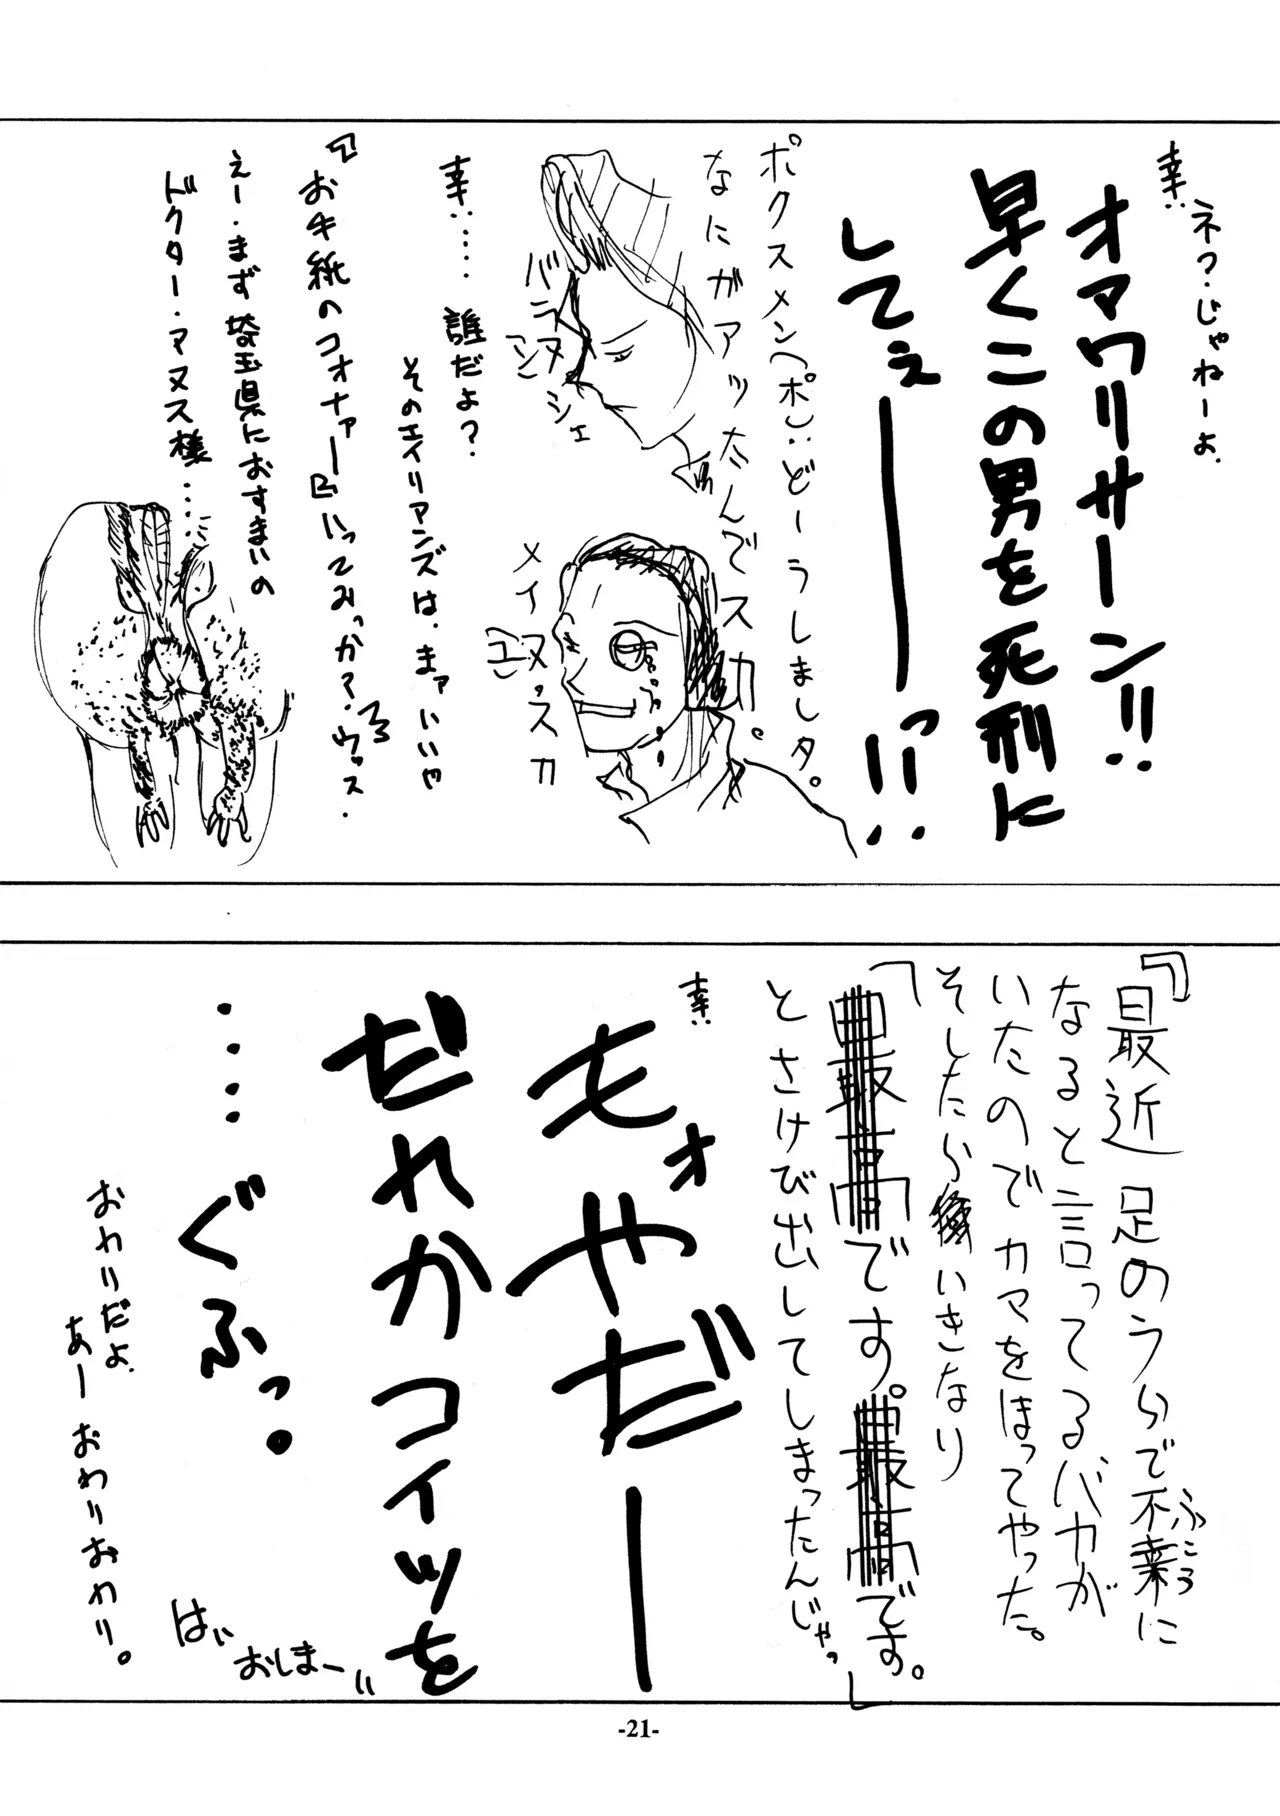 幸：ネ？・じゃねーよ．
オマワリサーン!!
早くこの男を死刑に
してぇ――っ!!
ポクスメン(ポ)：どーうしましタ。
なにがアッたんでスカ。
バラシェ
メイヌ・スカ
幸：‥‥誰だよ？
そのエイリアンズは．まァいいや
『お手紙のコォナァー』いってみっか？ウッス．
えー．まず埼玉県におすまいの
ドクター・アヌス様‥‥
『最近 足のうらで不幸に
ふこう
なると言ってるバカが
いたのでカマをほってやった。
そしたらいきなり
「最高です。最高です。」
とさけび出してしまったんじゃっ』
幸：
もォやだ――
だれかコイツを
‥‥ぐふっ。
おわりだよ．
あーおわりおわり。
はい
おしまーい
-21-